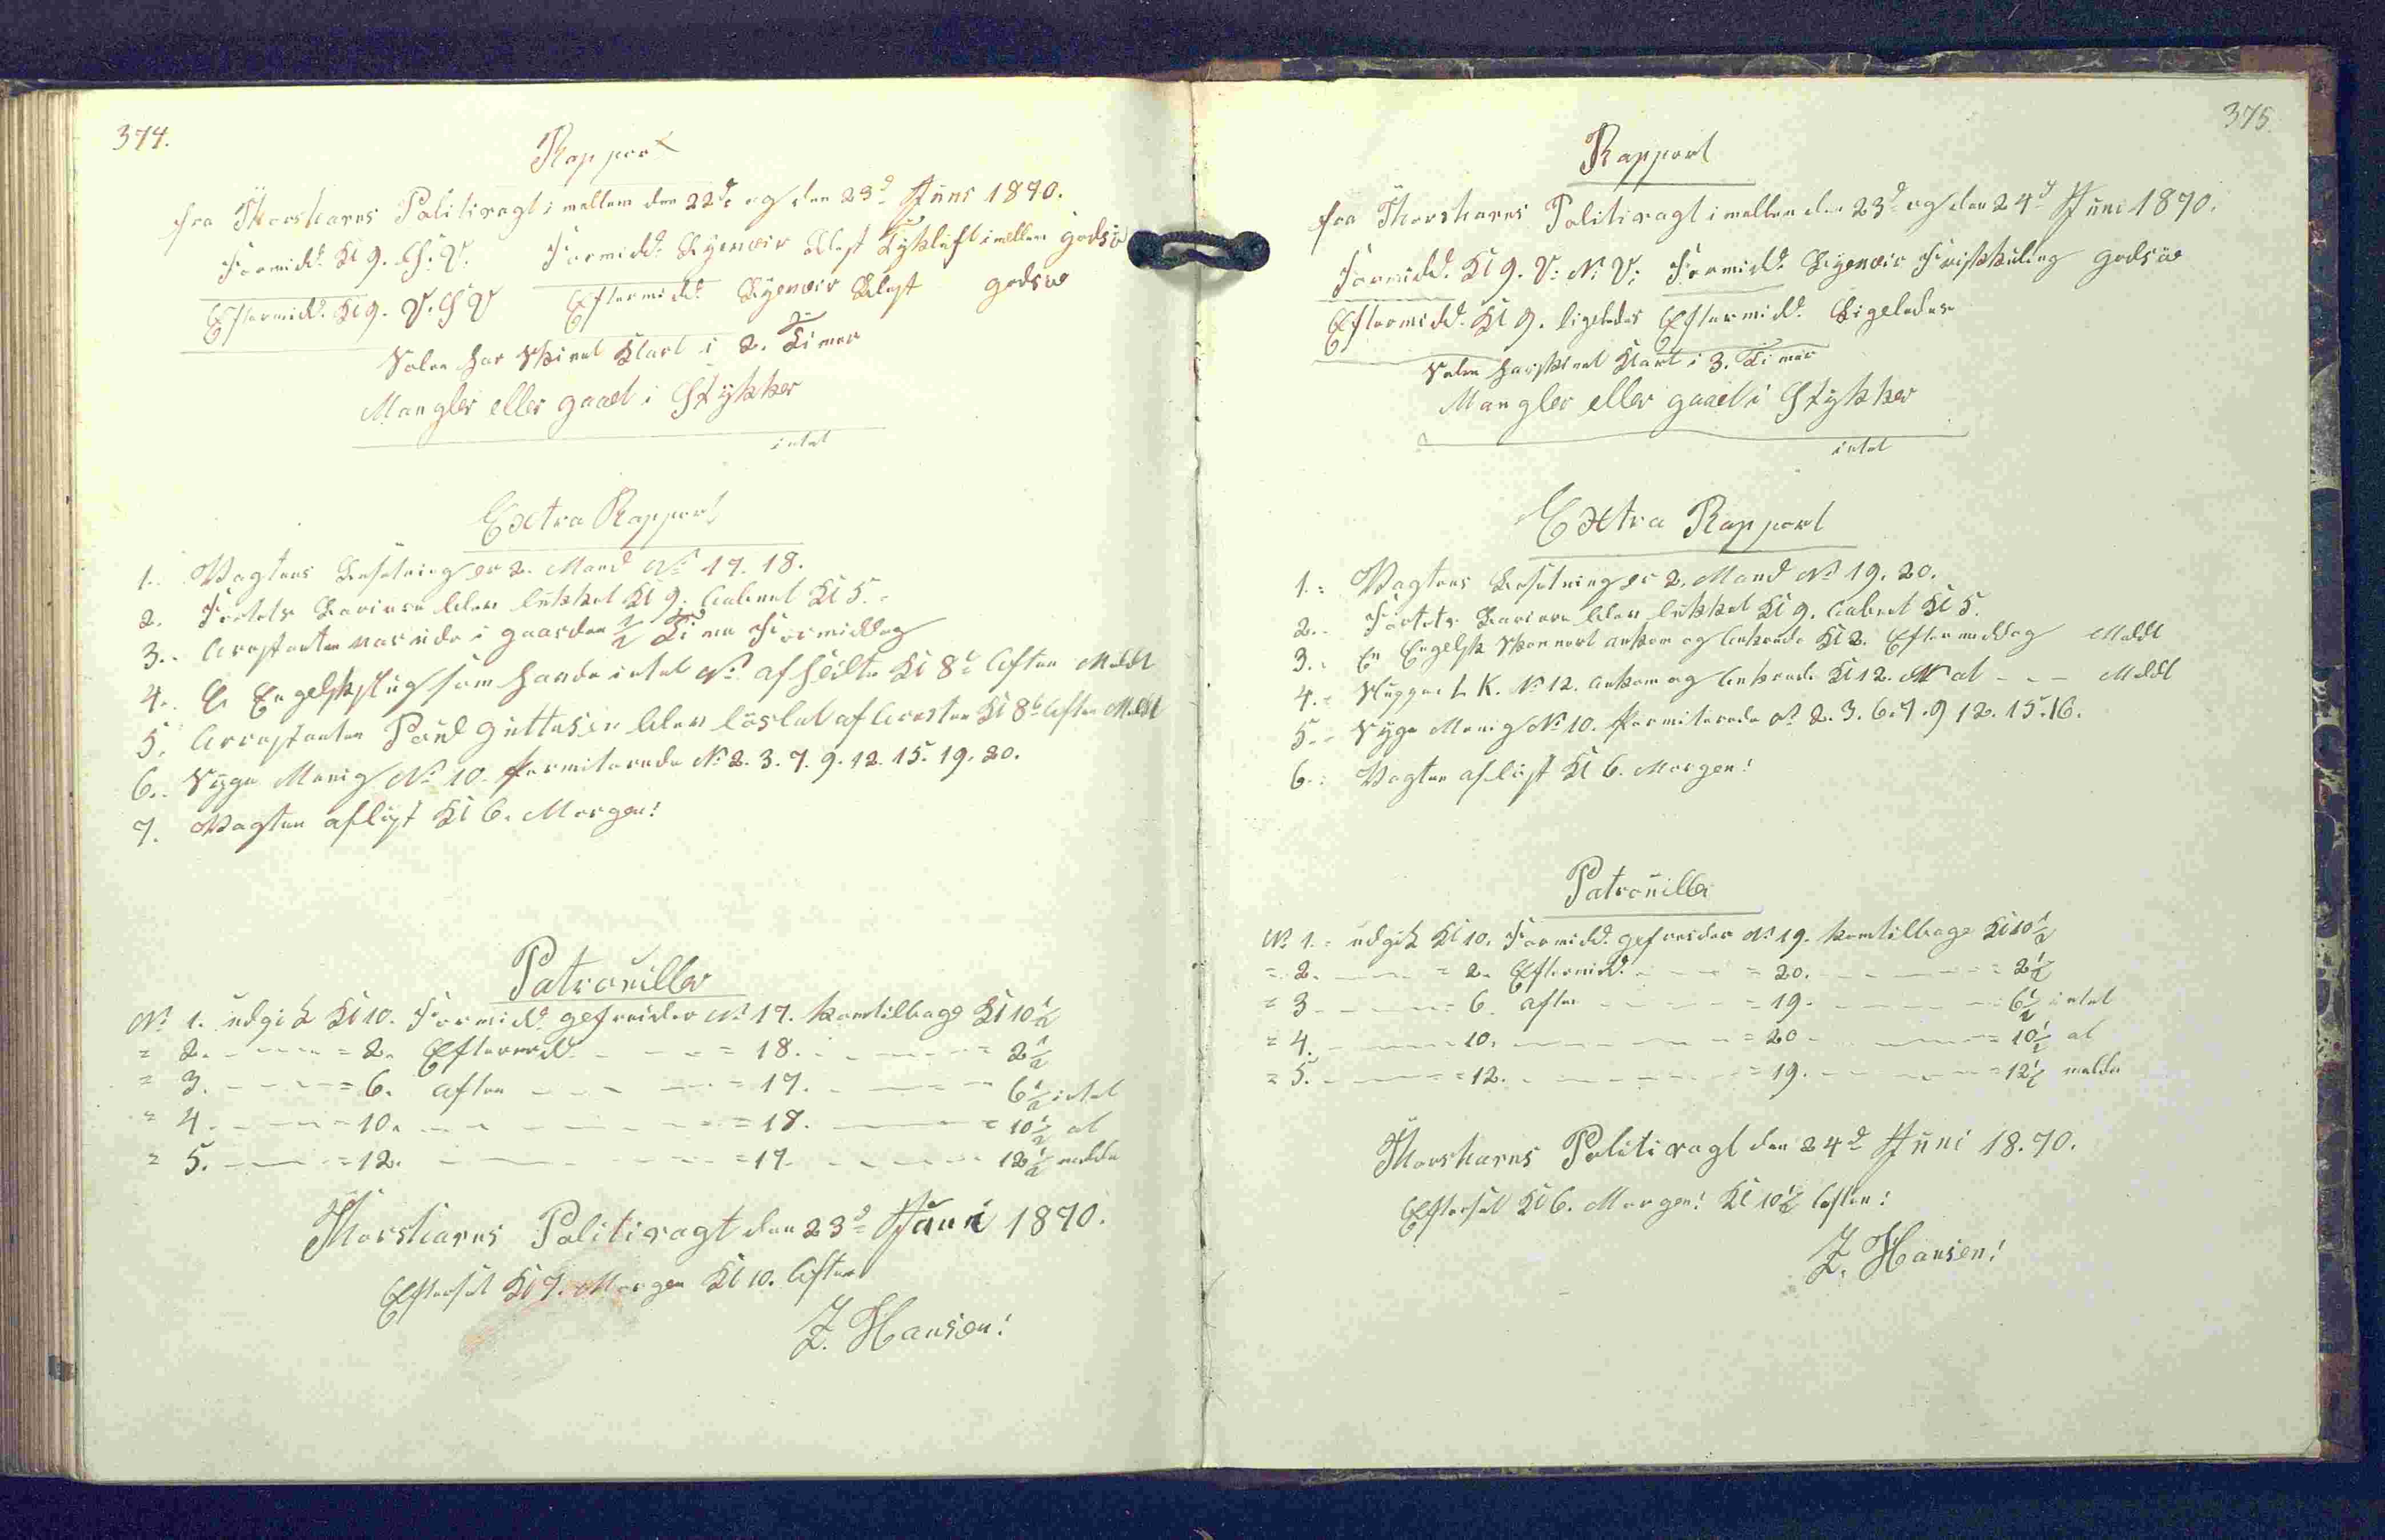 374.
Rapport
fra Thorshavns Politivagt imellem den 22de og den 23d Juni 1870.
Formidd. Kl 9. S. V. Formidd. Bygeveir Blest Tykluft imellem godsö
Eftermidd. Kl 9. V. S V Eftermidd. Bygeveir Blest godsö
Solen har Skinet Klart i 2. Timer
Mangler eller gaaet i Stykker
intet
Extra Rapport
1. Vagtens Besetning er 2. Mand No 17. 18.
2. Fortets Bariere blev lukket Kl 9. Aabnet Kl 5.
3. Arrestanten var ude i gaarden 1/2 Time Formiddag
4. En Engelsk som havde intet No. afseilte Kl 8 Aften Meldt
5. Arrestanten Poul Guttesen blev löslat af Aresten Kl 8 Aften Meldt
6. Syge Menig No 10. Permiterede No 2. 3. 7. 9. 12. 15. 19. 20.
7. Vagten aflöst Kl 6. Morgen!
Patrouiller
No 1. udgik Kl 10. Formidd. gefreider No 17. kom tilbage Kl 10 1/2
= 2. = 2. Eftermidd. = 18. = 2 1/2
= 3. = 6. Aften = 17. 6 1/2 intet
= 4. = 10. = 18. = 10 1/2 at
= 5. = 12. = 17. 12 1/2 melde
Thorshavns Politivagt den 23d Juni 1870.
Efterset Kl 7. Morgen Kl 10. Aften
Z. Hansen!
375.
Rapport
fra Thorshavns Politivagt imellem den 23d og den 24d Juni 1870.
Formidd. Kl 9. V. N. V. Formidd. Bygeveir Friskkuling godsö
Eftermidd. Kl 9. ligeledes Eftermidd. Ligeledes
Solen har skinet Klart i 3. Timer
Mangler eller gaaet i Stykker
intet
Extra Rapport
1. Vagtens Besetning er 2. Mand No 19. 20.
2. Fortets Bariere blev lukket Kl 9. Aabnet Kl 5.
3. En Engelsk Skonnert ankom og Ankrede Kl 2. Eftermiddag Meldt
4. Sluppen L K. No 12. Ankom og Ankrede Kl 12. Nat - - - Meldt
5. Syge Menig No 10. Permiterede No 2. 3. 6. 7. 9 12. 15. 16.
6. Vagten aflöst Kl 6. Morgen!
Patrouiller
No 1. udgik Kl 10. Formidd. gefreider No 19. kom tilbage Kl 10 1/2
= 2. = 2. Eftermidd. = 20. = 2 1/2
= 3 = 6. Aften = 19. 6 1/2 intet
= 4. 10. = 20 = 10 1/2 at
= 5. = 12. = 19. = 12 1/2 melde
Thorshavns Politivagt den 24d Juni 18.70.
Efterset Kl 6. Morgen! Kl 10 1/2 Aften!
Z. Hansen!